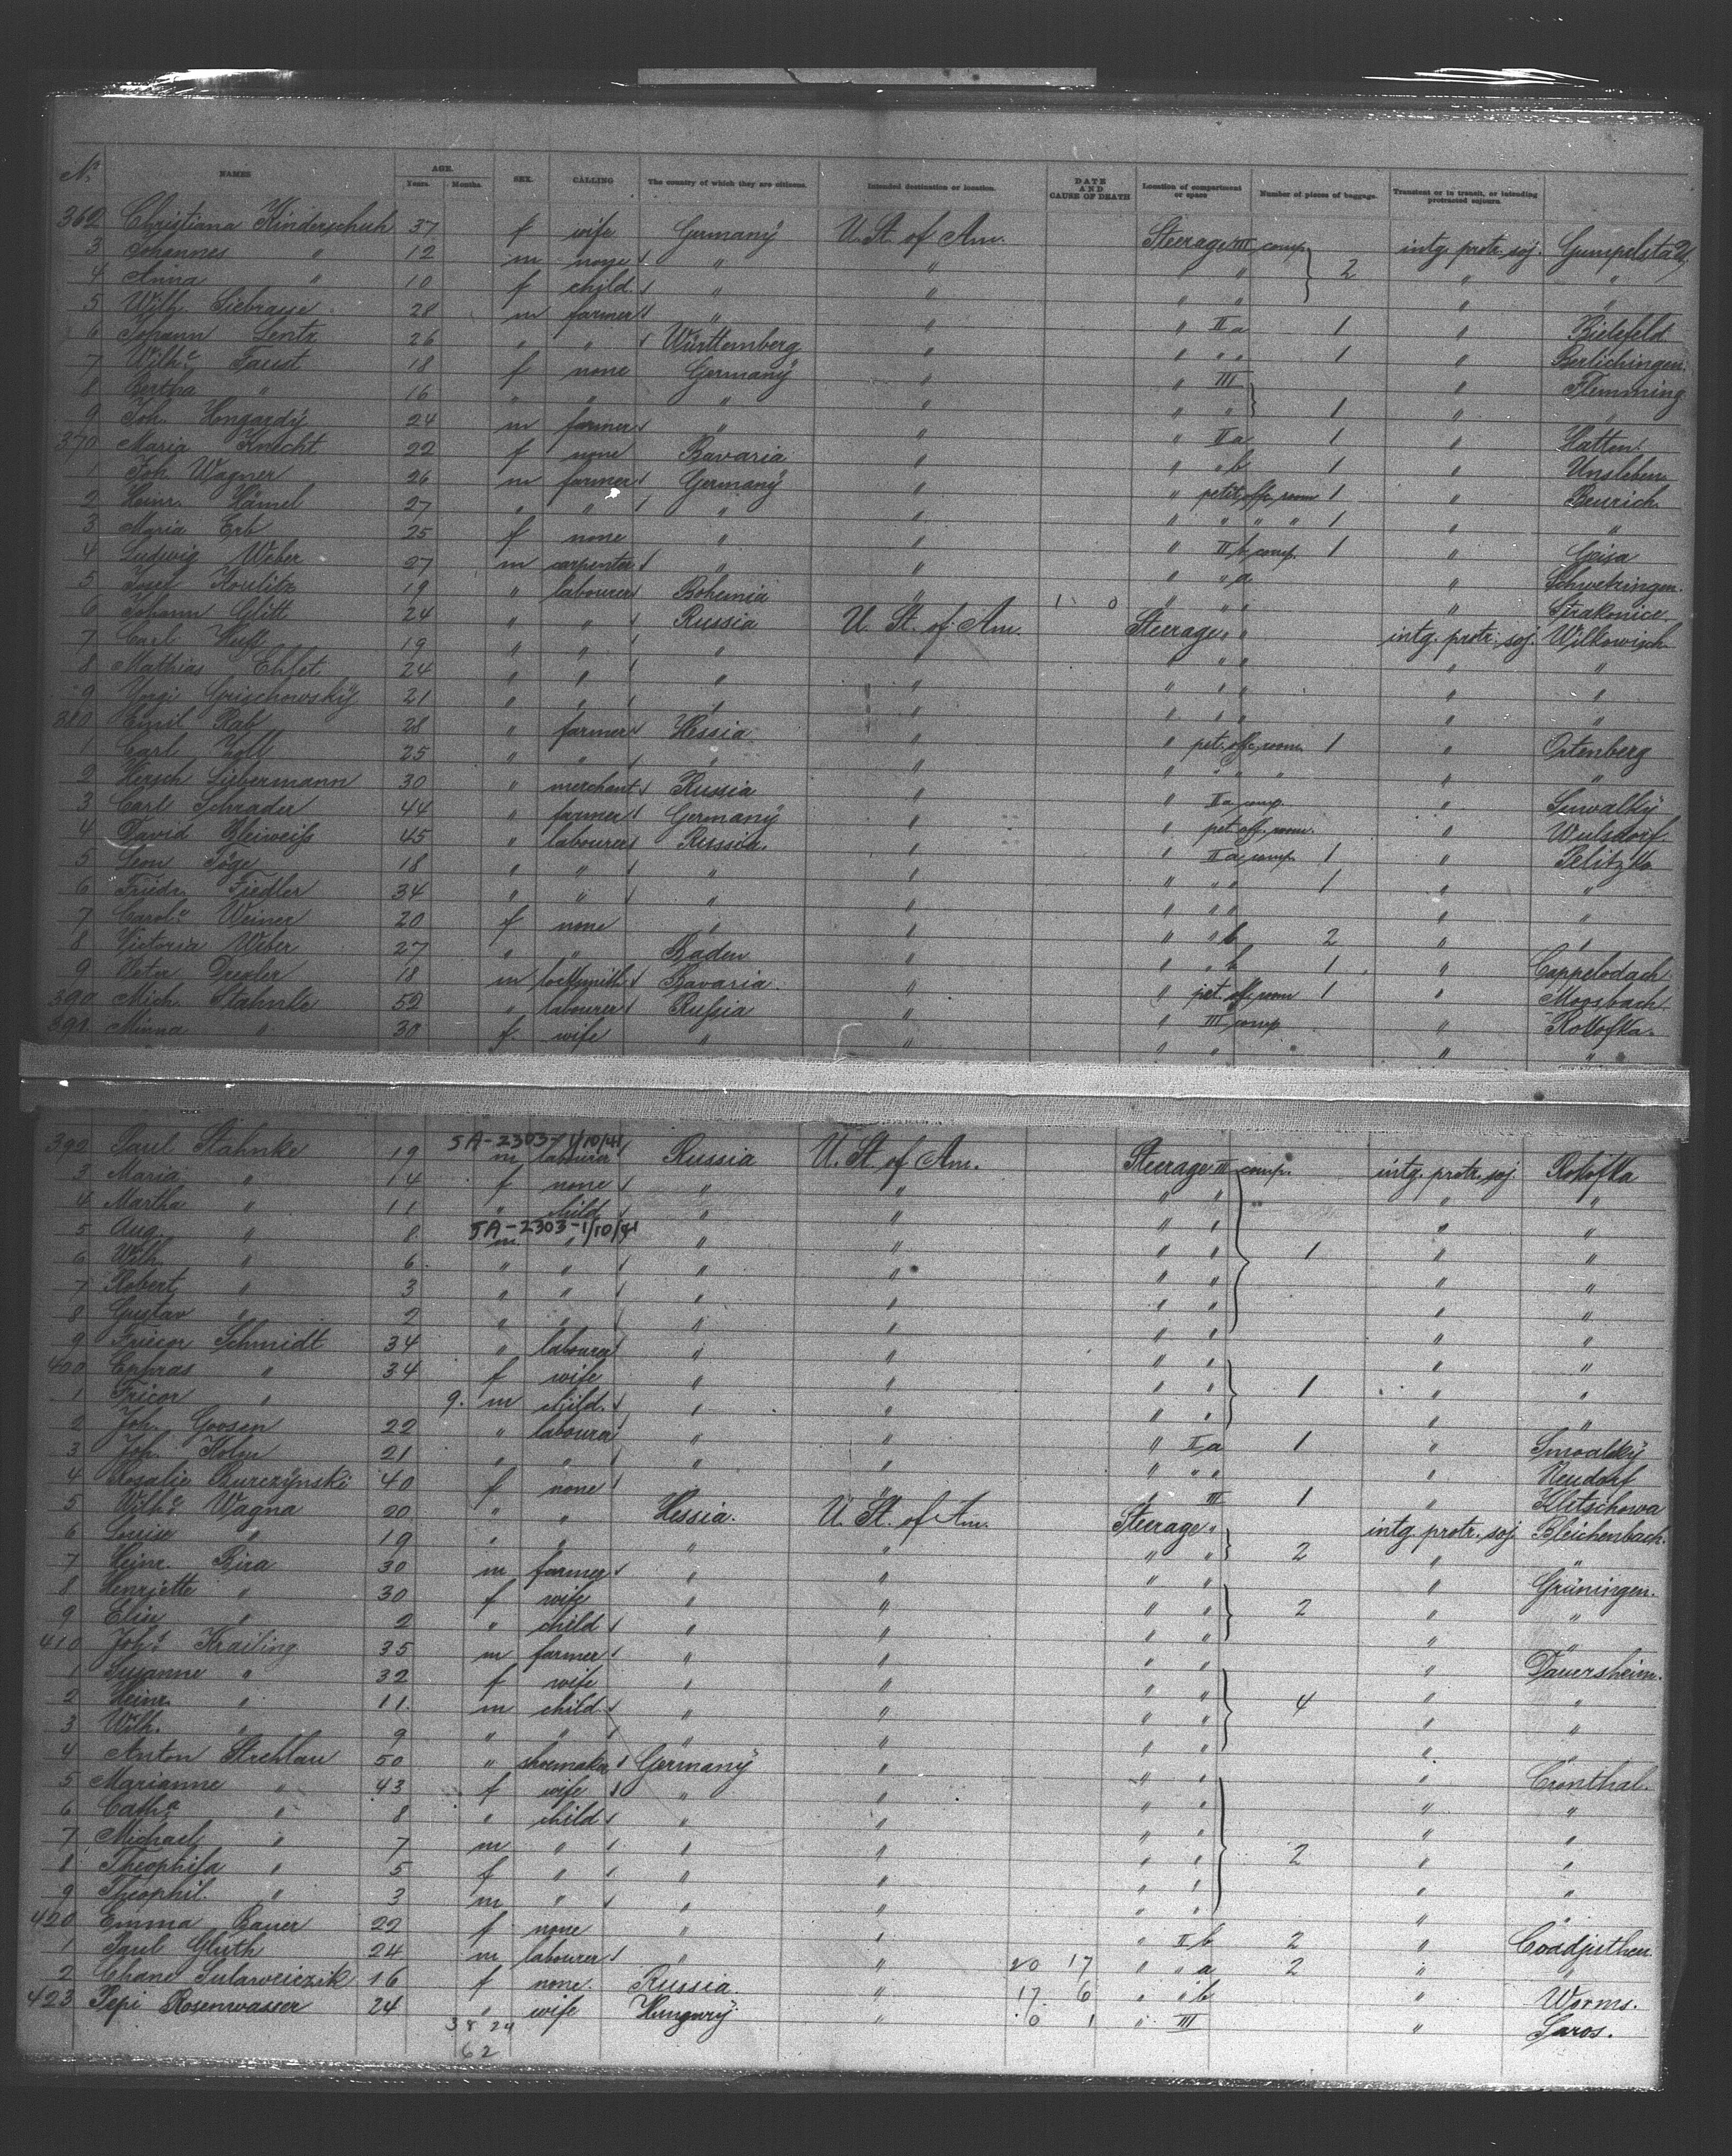 No. NAMES AGE. Years. Months. SEX. CALLING The country of which they are citizens. Intended destination or location. DATE AND CAUSE OF DEATH Location of compartment or space Number of pieces of baggage. Transient or in transit, or intending protracted sojourn.
362 Christiana Kinderschuh 37 f wife Germany U. St. of Am. Steerage III comp. intg. protr. soj.
3 Johannes " 12 m none " " " " 2 " "
4 Anna " 10 f child " " " " " "
5 Wilh. Siebrasse 28 m farmer " " " II a 1 " Bielefeld
6 Johann Lentz 26 " " Württemberg " " " " 1 " Berlichingen.
7 Wilh.e Faust 18 f none Germany " " III " Flemming
8 Bertha " 16 " " " " " " 1 " "
9 Joh. Hongardy 24 m farmer " " " II a 1 " Hatten
370 Maria Knecht 22 f none Bavaria " " " b 1 " Unsleben
1 Joh. Wagner 26 m farmer Germany " " petit. offc. room 1 " Beurich.
2 Heinr. Hämel 27 " " " " " " " " 1 " "
3 Maria Erb 25 f none " " " II b comp. 1 " Geisa
4 Ludwig Weber 27 m carpenter " " " " a " Schwetzingen.
5 Josef 19 " labourer Bohemia " 1 0 " " " " Strakonice
6 Johann Glitt 24 " " Russia U. St. of Am. Steerage " " intg. protr. soj. Wilkowisch
7 Carl 19 " " " " " " " " "
8 Mathias 24 " " " " " " " " "
9 Grischowsky 21 " " " " " " " " "
380 Emil Rab 28 " farmer Hessia " " pet. offc. room 1 " Ortenberg
1 Carl Zoll 25 " " " " " " " " " "
2 Hersch Liebermann 30 " merchant Russia " " II a comp. " Suwalky
3 Carl Schrader 44 " farmer Germany " " pet. off. room. " Wulsdorf.
4 David Bleiweiss 45 " labourer Russia. " " II a comp. 1 "
5 Leon 18 " " " " " " " 1 " "
6 Friedr. Fiedler 34 " " " " " " " " "
7 Carol.e Weiner 20 f none " " " " b 2 " "
8 Victoria Weber 27 " " Baden " " " b 1 "
9 Peter Drexler 18 m locksmith Bavaria " " pet. off. room 1 " Mossbach
390 Mich. Stahnke 52 " labourer Russia " " III comp. " Rokofka.
391. Minna " 30 f wife " " " " " "
392 Paul Stahnke 19 m labourer Russia U. St. of Am. Steerage III comp. intg. protr. soj. Rokofka
5A-2303-1/10/41
3 Maria " 14 f none " " " " " "
4 Martha " 11 " child " " " " " "
5A-2303-1/10/41
5 Aug. " 8 m " " " " " 1 " "
6 Wilh. " 6 " " " " " " " "
7 Robert " 3 " " " " " " " "
8 Gustav " 2 " " " " " " " "
9 Schmidt 34 " labourer " " " " " "
400 " 34 f wife " " " " 1 " "
1 " 9 m child " " " " " "
2 Joh. Goosen 22 " labourer " " " II a 1 "
3 Joh. 21 " " " " " " " " Neudorf
4 Rosalie Burczynski 40 f none " " " III 1 " Kletschowa
5 Wilh.e Wagna 20 " " Hessia. U. St. of Am. Steerage " intg. protr. soj. Bleichenbach.
6 Louise " 19 " " " " " " 2 " "
7 Heinr. Bira 30 m farmer " " " " " Grüningen.
8 Henriette " 30 f wife " " " " 2 " "
9 Elise " 2 " child " " " " " "
410 Joh.s Krailing 35 m farmer " " " " " Dauersheim.
1 Susanne " 32 f wife " " " " 4 " "
2 Heinr. " 11 m child " " " " " "
3 Wilh. " 9 " " " " " " " "
4 Anton Strehlau 50 " shoemaker Germany " " " " Cronthal.
5 Marianne " 43 f wife " " " " " "
6 Cath.a " 8 " child " " " " " "
7 Michael " 7 m " " " " " 2 " "
8 Theophila " 5 f " " " " " " "
9 Theophil. " 3 m " " " " " " "
420 Emma Bauer 22 f none " " " II b 2 " Coadjuthen
1 Paul Gluth 24 m labourer " " 20 17 " " a 2 " "
2 Chane 16 f none. Russia " 17 6 " " b " Worms.
423 Pepi Rosenwasser 24 " wife Hungary " 0 1 " III " Saros.
38 24
62